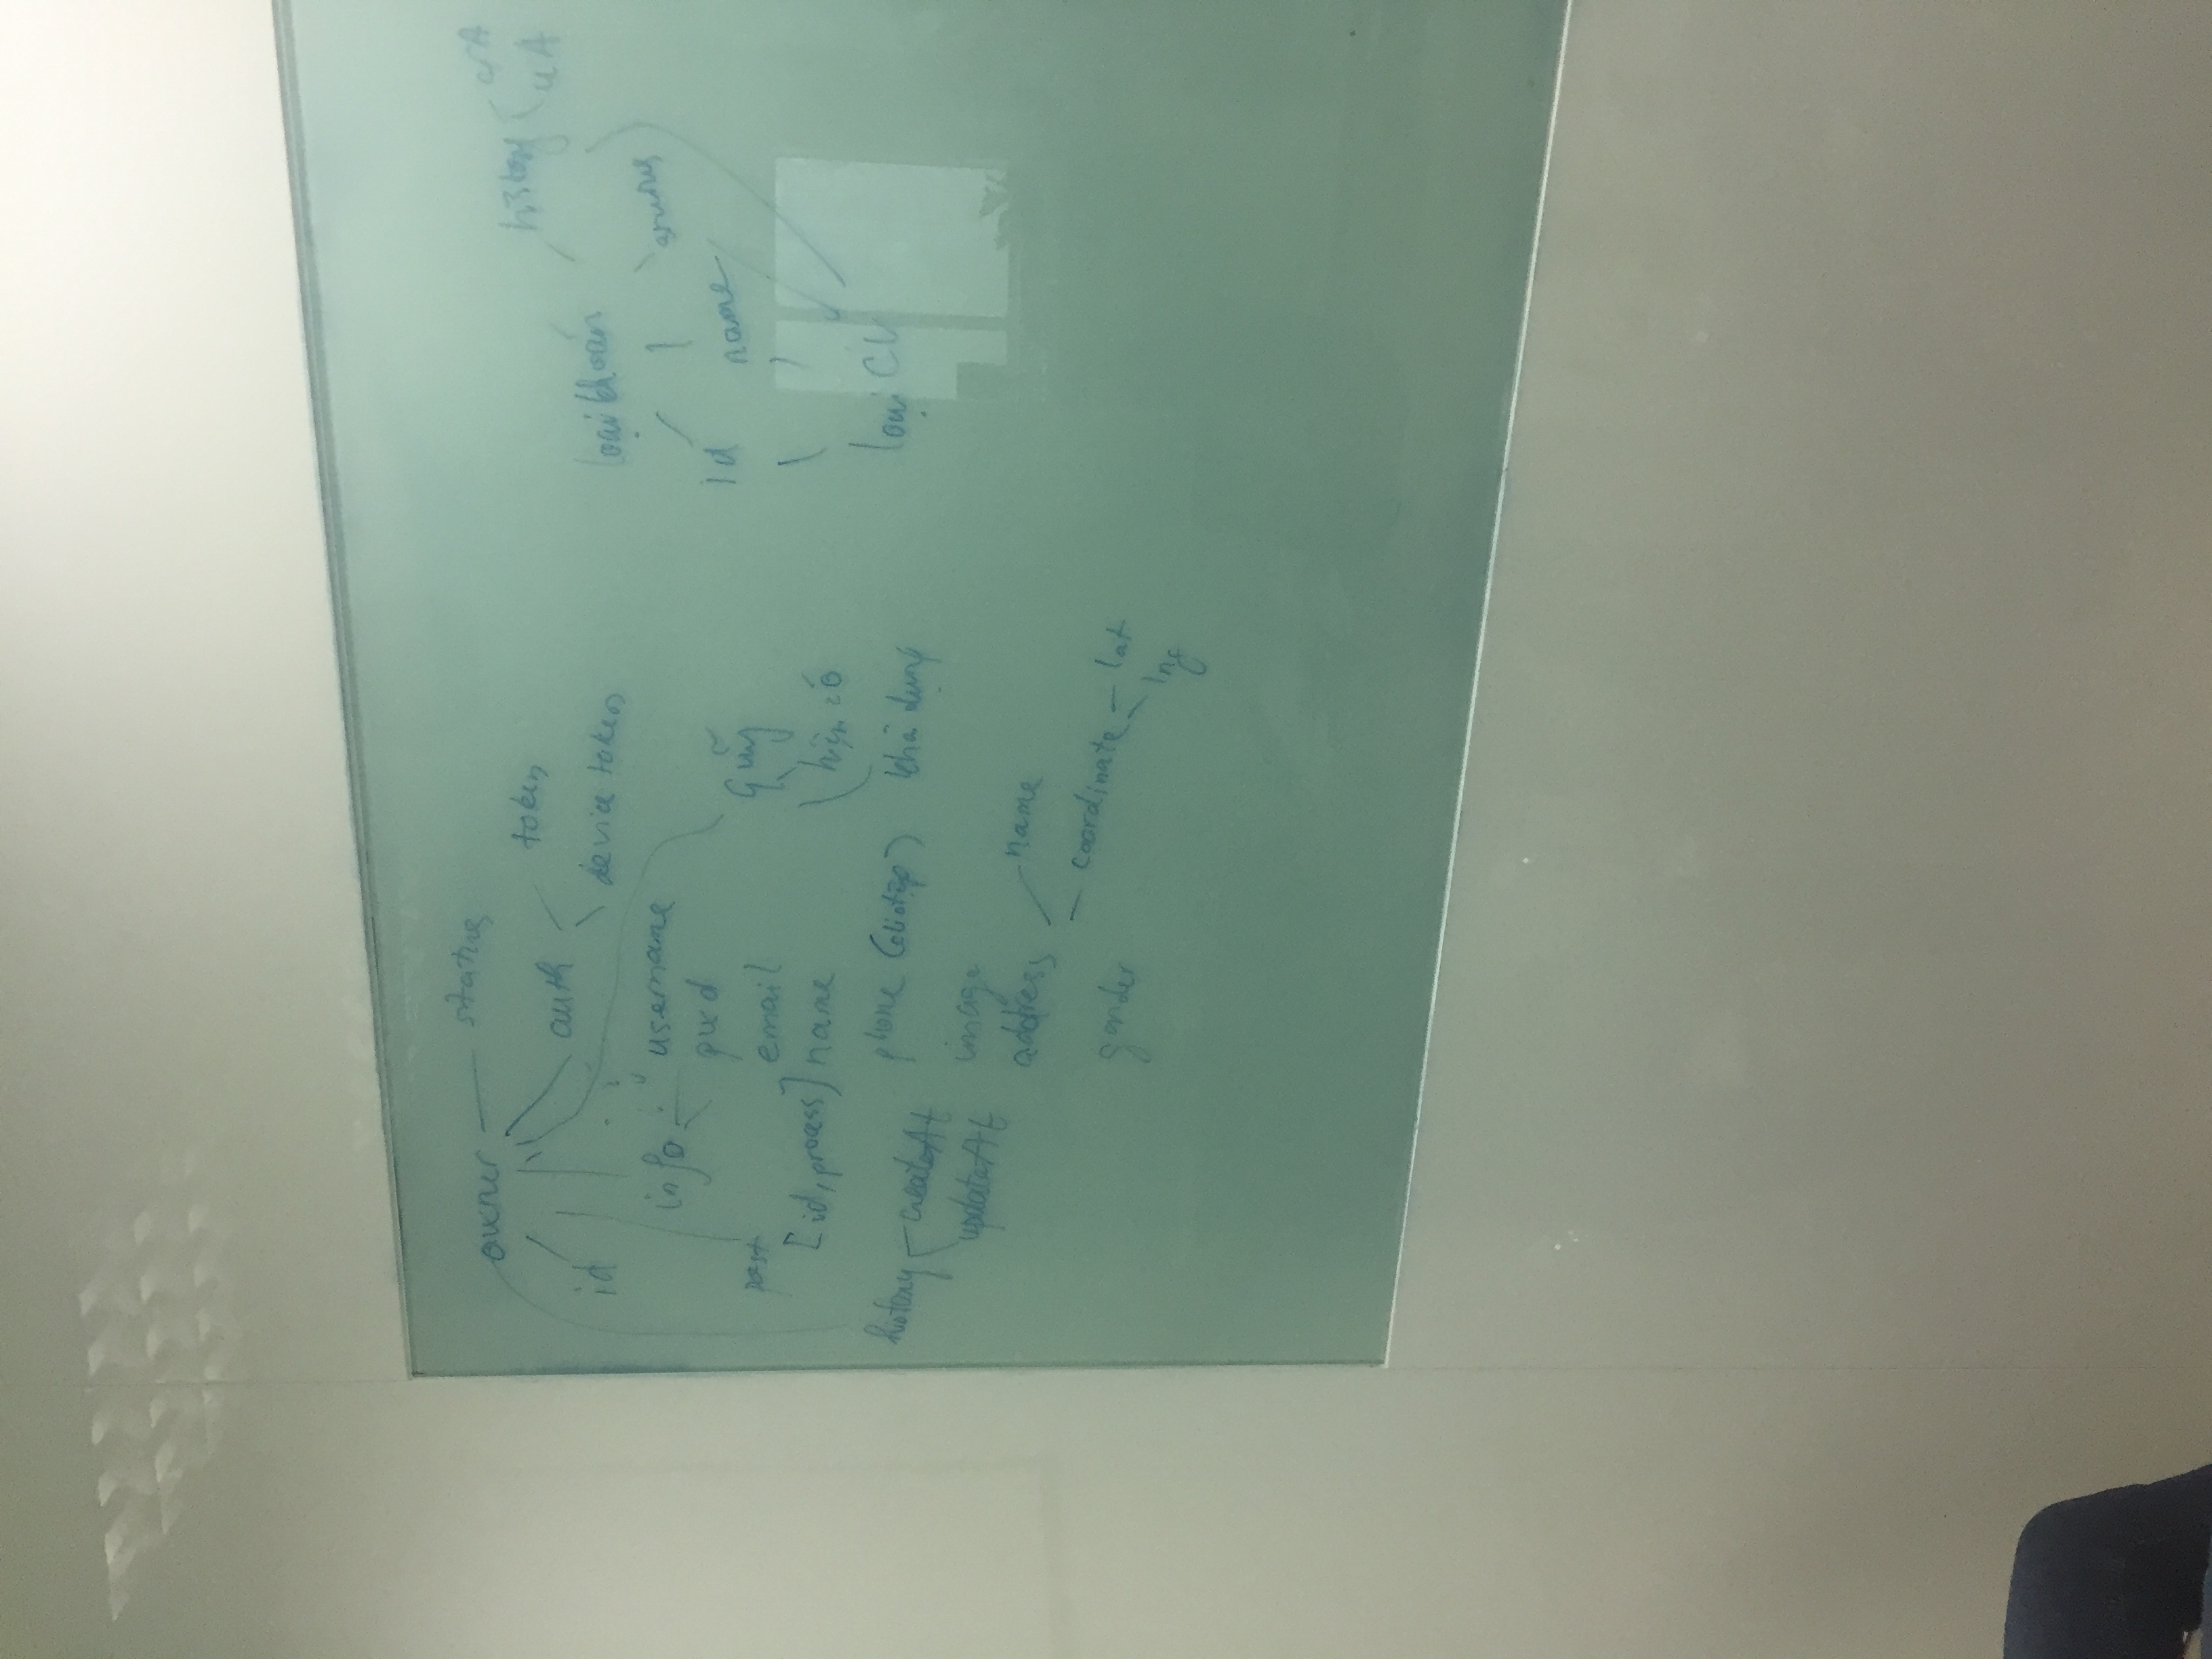 owner
status
id
auth
token
device token
info
username
pwd
email
name
phone
image
address
name
coordinate
lat
lng
gender
post
[id, process]
history
createAt
updateAt
quỹ
hiện có
khả dụng
loại khoán
history
crA
uA
id
name
status
loại CV